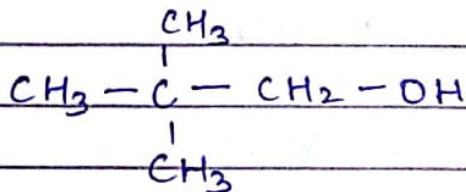 CH3
CH3 - C - CH2 - OH
CH3